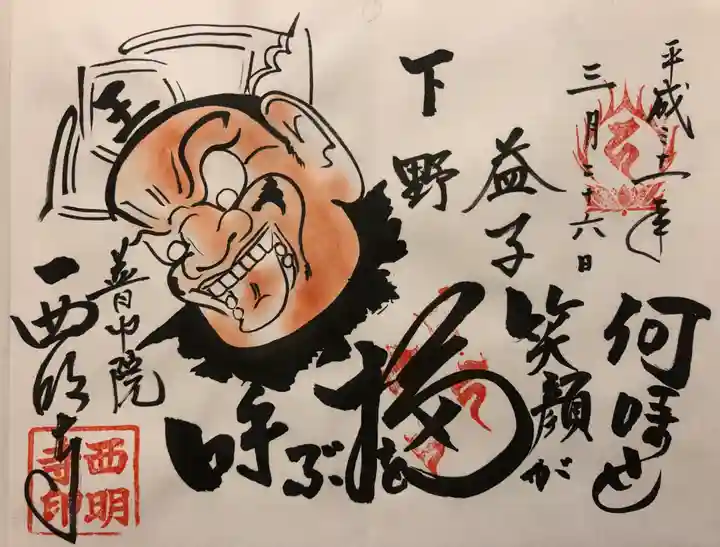 平成三十一年
三月二十六日
何時も
笑顔が
福を
呼ぶ
益子
下野
王
普門院
西明寺
西明
寺印